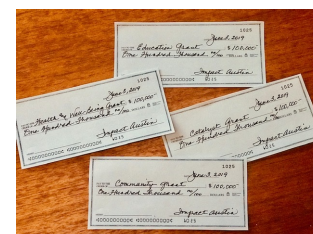 1025
June 3, 2019
Education Grant $100,000
One Hundred Thousand no/100
Impact Austin
0215
1025
June 3, 2019
Health & Well-Being Grant $100,000
One Hundred Thousand no/100
Impact Austin
0215
1025
June 3, 2019
Catalyst Grant $100,000
One Hundred Thousand no/100
Impact Austin
0215
1025
June 3, 2019
Community Grant $100,000
One Hundred Thousand no/100
Impact Austin
0215